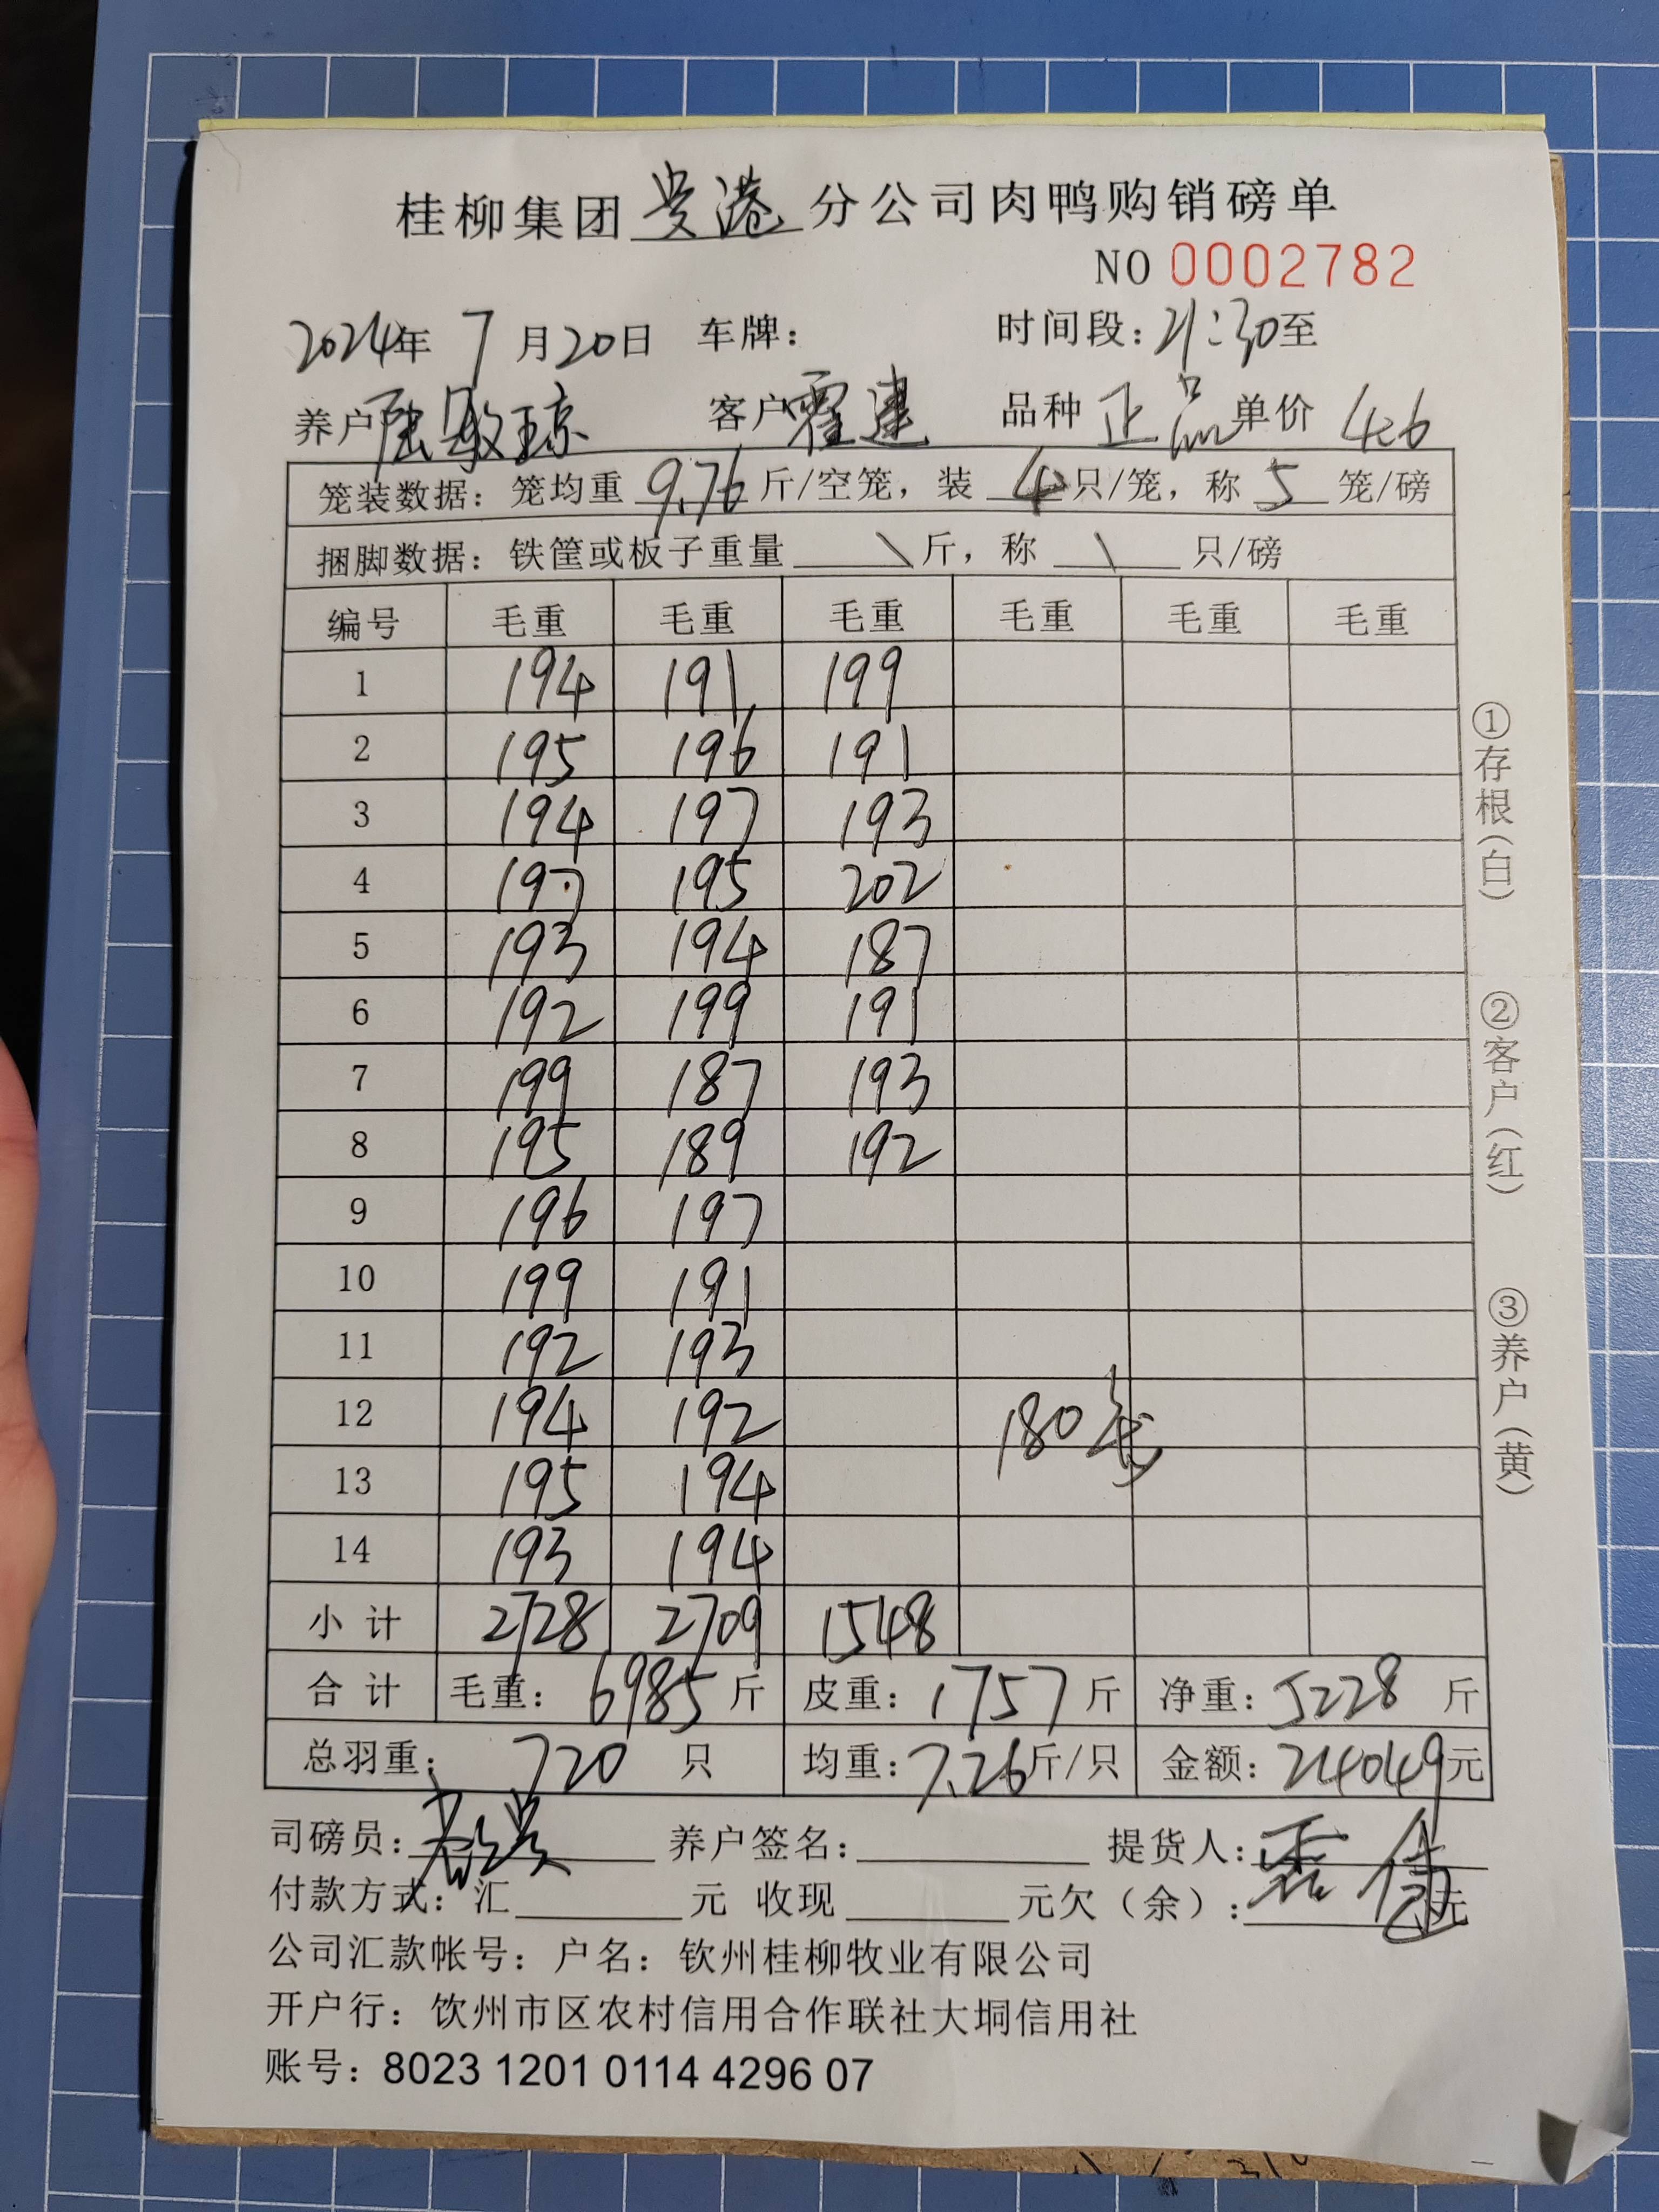 桂柳集团贵港分公司肉鸭购销磅单
NO 0002782
2024年 7月20日 车牌: 时间段:21:30至
养户 敏琼 客户霍建 品种 正品 单价 4.6
笼装数据: 笼均重 9.76 斤/空笼, 装 4 只/笼, 称 5 笼/磅
捆脚数据: 铁筐或板子重量 \ 斤, 称 \ 只/磅
编号 毛重 毛重 毛重 毛重 毛重 毛重
1 194 191 199
2 195 196 191
3 194 197 193
4 197 195 202
5 193 194 187
6 192 199 191
7 199 187 193
8 195 189 192
9 196 197
10 199 191
11 192 193
12 194 192 180笼
13 195 194
14 193 194
小计 2728 2709 1548
合计 毛重: 6985 斤 皮重: 1757 斤 净重: 5228 斤
总羽重: 720 只 均重: 7.26 斤/只 金额: 24049元
司磅员: 养户签名: 提货人:
付款方式: 汇 元 收现 元欠(余): 元
公司汇款帐号: 户名: 钦州桂柳牧业有限公司
开户行: 钦州市区农村信用合作联社大垌信用社
账号: 8023 1201 0114 4296 07
①存根(白)
②客户(红)
③养户(黄)